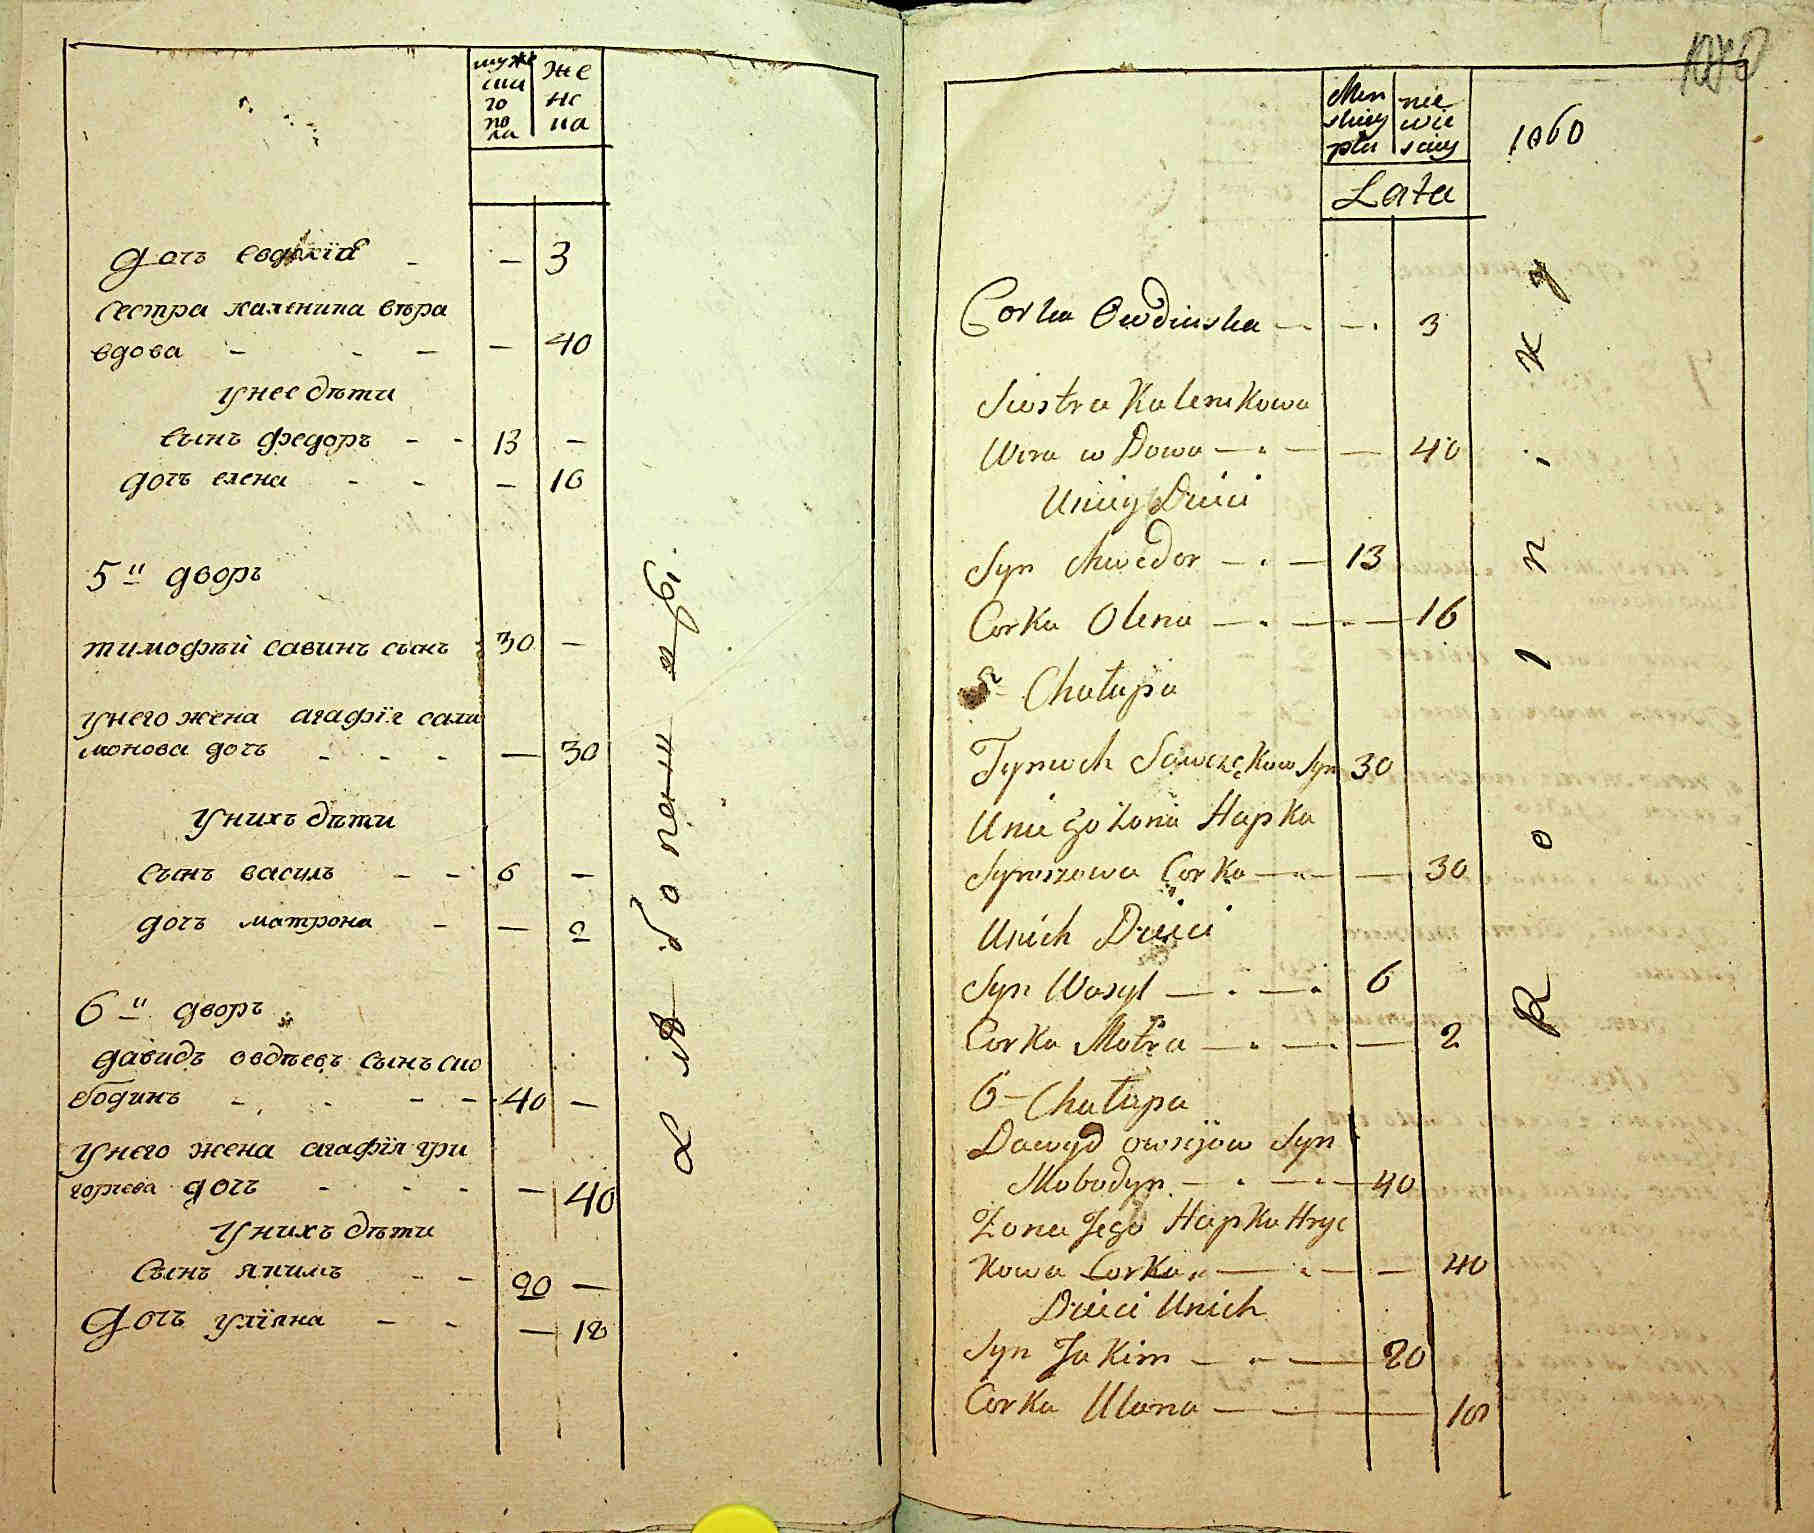 муже
ска
го
по
ла
же
нс
ка
дочь евдокїа - - 3
сестра каленина вѣра
вдова - - - - 40
у нее дѣти
сынъ федоръ - - 13 -
дочь елена - - - 16
5 и дворъ
тимофѣй савинъ сынъ 30 -
у него жена агафїя сали
монова дочь - - - - 30
у нихъ дѣти
сынъ василь - - 6 -
дочь матрона - - 2
6 и дворъ
давидъ овдѣевъ сынъ сло
бодинъ - - - - 40 -
у него жена агафїя гри
горьева дочь - - - - 40
у нихъ дѣти
сынъ якимъ - - 20 -
дочь улїяна - - - 18
Men
skiey
płci
nie
wie
sciey
Lata
1060
Corka Owdiuska - - 3
Siostra Kalenikowa
Wira w Dowa - - - 40
Uniey Dzieci
Syn Chwedor - - 13
Corka Olena - - - 16
5 - Chałupa
Tymoch Sawczękow Syn 30
Unie go żona Hapka
Symoszowa Corka - - - 30
Unich Dzieci
Syn Wasyl - - 6
Corka Motra - - - 2
6 - Chałupa
Dawyd owsijow Syn
Słobodyn - - - 40
Zona Jego Hapka Hryc
kowa Corka - - - 40
Dzieci Unich
Syn Jakim - - 20
Corka Ulana - - - 18
R o l n i k y